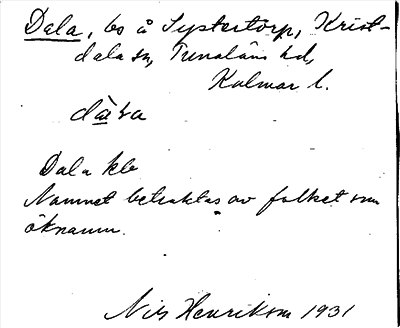 Dala, bs å Systertorp, Krist-
dala sn, Tunaläns hd,
Kalmar l.
dà̲la
Dala kb
Namnet betraktas av folket som
öknamn.
Nils Henrikson 1931